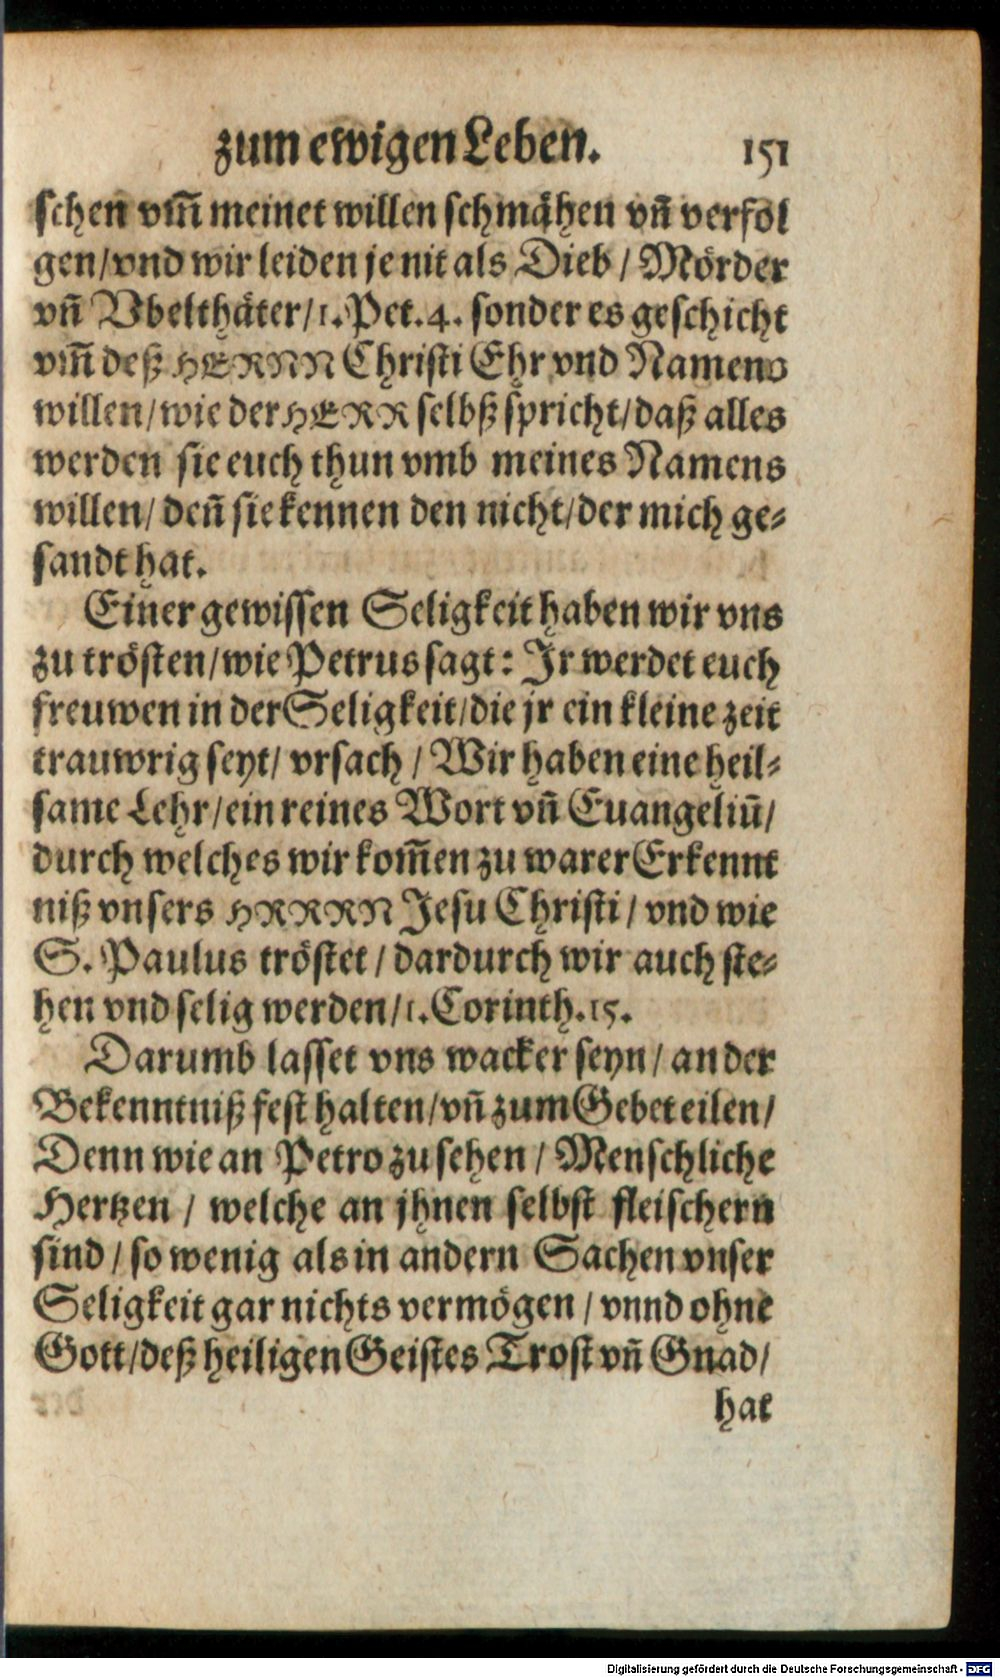 zum ewigen Leben. 151
schen vm̃ meinet willen schmähen vñ verfol
gen/vnd wir leiden je nit als Dieb / Mörder
vñ Vbelthäter/1. Pet. 4. sonder es geschicht
vm̃ deß HERNN Christi Ehr vnd Namens
willen/wie der HERR selbß spricht/daß alles
werden sie euch thun vmb meines Namens
willen/ deñ sie kennen den nicht/der mich ge-
sandt hat.
Einer gewissen Seligkeit haben wir vns
zu trösten/wie Petrus sagt: Jr werdet euch
freuwen in der Seligkeit/die jr ein kleine zeit
trauwrig seyt/ vrsach / Wir haben eine heil-
same Lehr/ein reines Wort vñ Euangeliũ/
durch welches wir kom̃en zu warer Erkennt
niß vnsers HRRRN Jesu Christi / vnd wie
S. Paulus tröstet / dardurch wir auch ste-
hen vnd selig werden/1. Corinth. 15.
Darumb lasset vns wacker seyn / an der
Bekenntniß fest halten/vñ zum Gebet eilen/
Denn wie an Petro zu sehen / Menschliche
Hertzen / welche an jhnen selbst fleischern
sind / so wenig als in andern Sachen vnser
Seligkeit gar nichts vermögen / vnnd ohne
Gott/deß heiligen Geistes Trost vñ Gnad/
hat
Digitalisierung gefördert durch die Deutsche Forschungsgemeinschaft - DFG